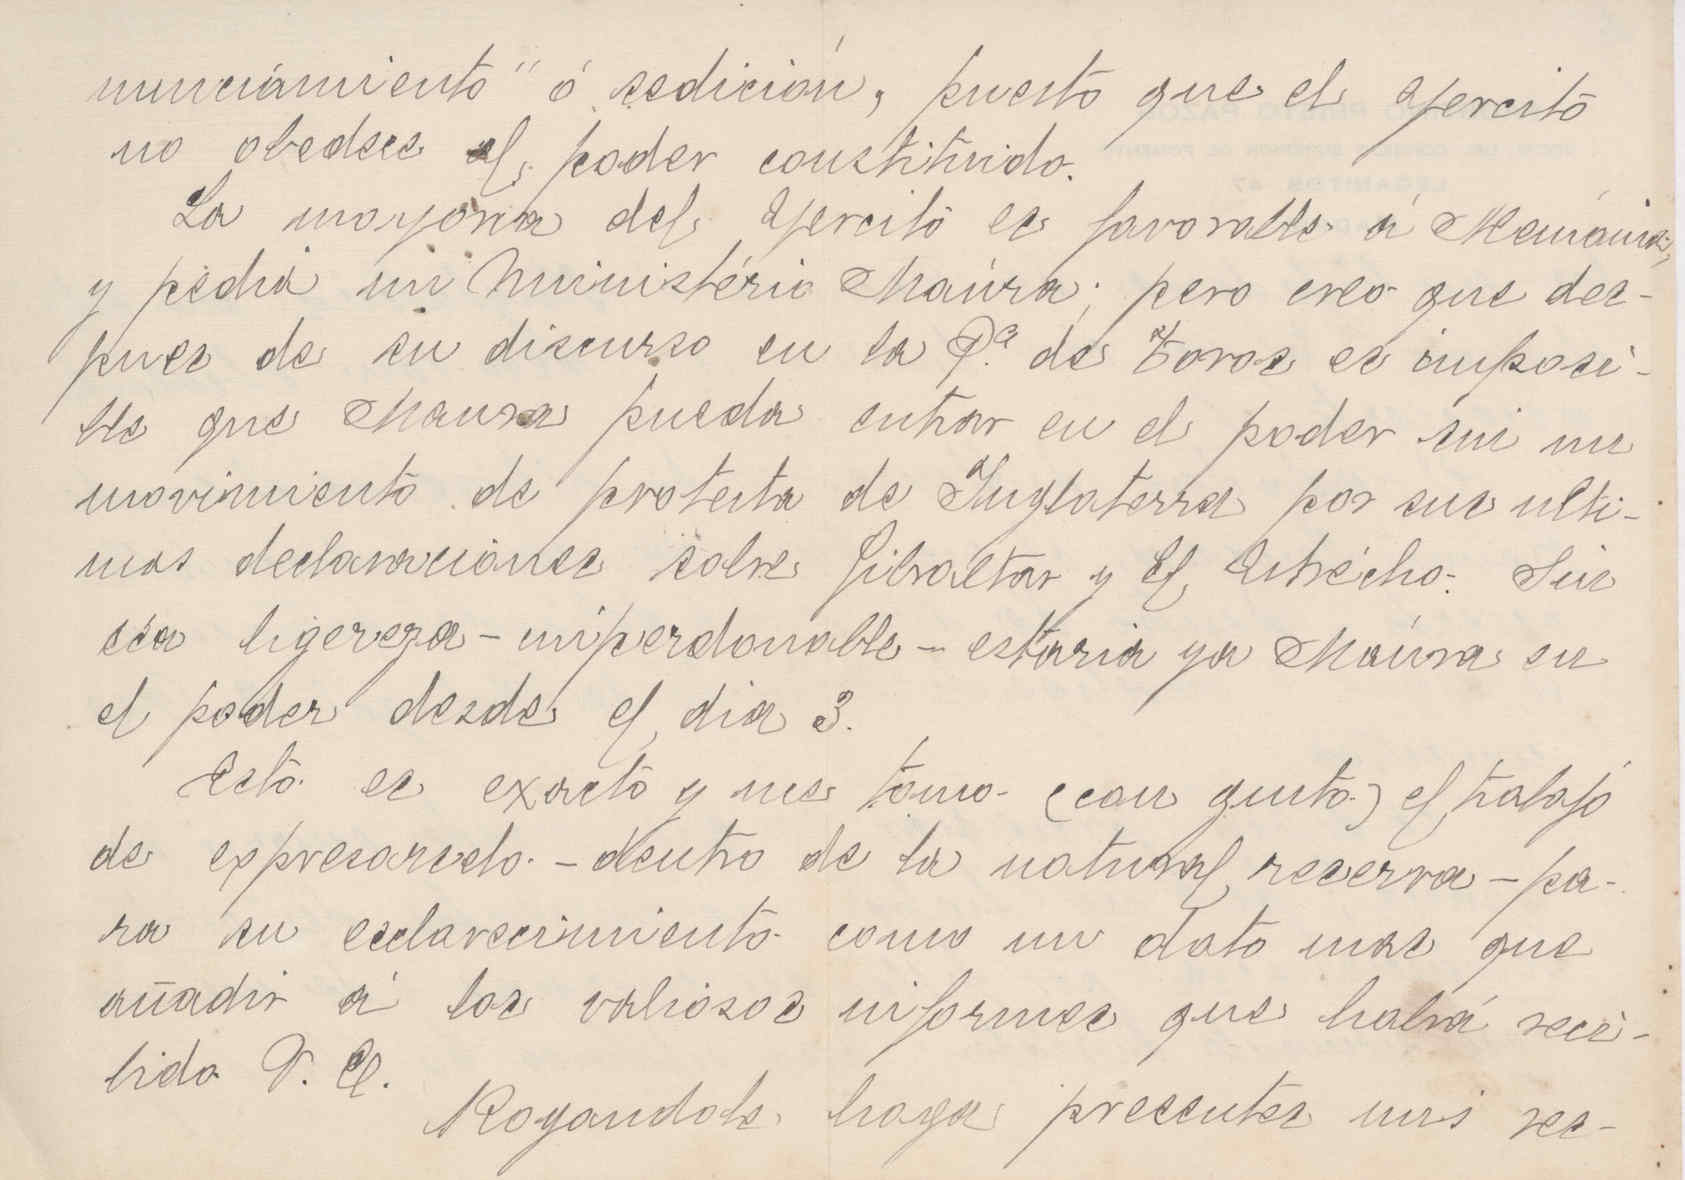 nunciamiento" ó sedición, puesto que el ejercitó
no obedece al poder constituido.
La mayoria del Ejercito es favorable á Alemánia,
y pedia un Ministério Maura; pero creo que des-
pues de su discurso en la P.ª de Toros es imposi-
ble que Maura pueda entrar en el poder sin un
movimiento de protesta de Inglaterra por sus ulti-
mas declaraciones sobre Gibraltar y El Estrécho. Sin
esa ligereza - imperdonable - estaria ya Maura en
el poder desde el dia 3.
Esto es exacto y me tomo (con gusto) el trabajo
de expresarselo - dentro de la natural reserva - pa-
ra su esclarecimiento como un dato mas que
añadir á los valiosos informes que habrá reci-
bido V. E.
Rogandole haga presentes mis res-